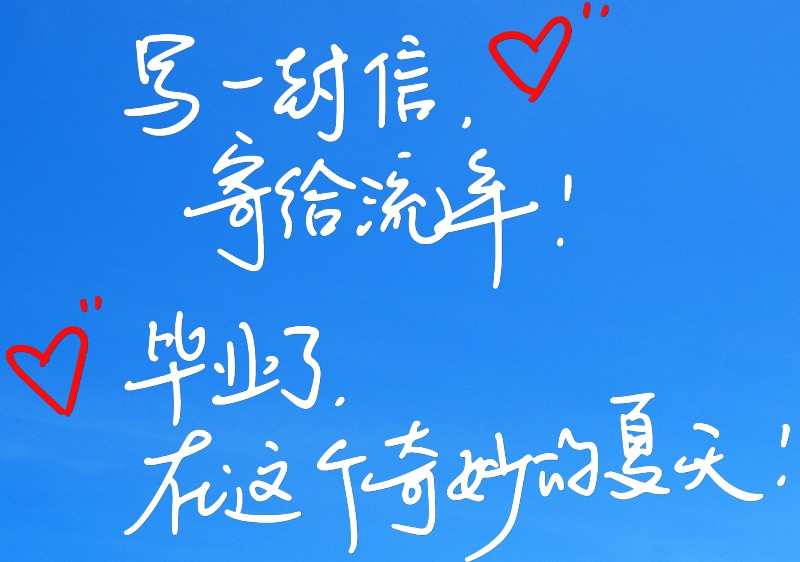 写一封信,
寄给流年!
毕业了.
在这个奇妙的夏天!